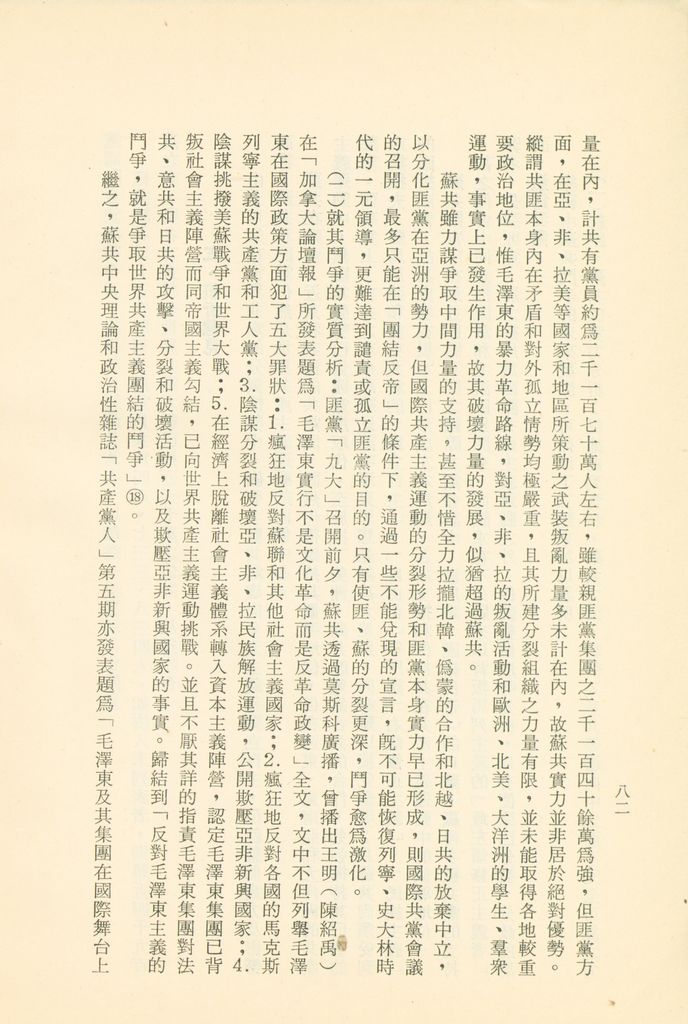 八二
量在內，計共有黨員約爲二千一百七十萬人左右，雖較親匪黨集團之二千一百四十餘萬爲強，但匪黨方
面，在亞、非、拉美等國家和地區所策動之武裝叛亂力量多未計在內，故蘇共實力並非居於絕對優勢。
縱謂共匪本身內在矛盾和對外孤立情勢均極嚴重，且其所建分裂組織之力量有限，並未能取得各地較重
要政治地位，惟毛澤東的暴力革命路線，對亞、非、拉的叛亂活動和歐洲、北美、大洋洲的學生、羣衆
運動，事實上已發生作用，故其破壞力量的發展，似猶超過蘇共。
蘇共雖力謀爭取中間力量的支持，甚至不惜全力拉攏北韓、僞蒙的合作和北越、日共的放棄中立，
以分化匪黨在亞洲的勢力，但國際共產主義運動的分裂形勢和匪黨本身實力早已形成，則國際共黨會議
的召開，最多只能在「團結反帝」的條件下，通過一些不能兌現的宣言，旣不可能恢復列寧、史大林時
代的一元領導，更難達到譴責或孤立匪黨的目的。只有使匪、蘇的分裂更深，鬥爭愈爲激化。
(二)就其鬥爭的實質分析：匪黨「九大」召開前夕，蘇共透過莫斯科廣播，曾播出王明（陳紹禹）
在「加拿大論壇報」所發表題爲「毛澤東實行不是文化革命而是反革命政變」全文，文中不但列舉毛澤
東在國際政策方面犯了五大罪狀：1.瘋狂地反對蘇聯和其他社會主義國家；2.瘋狂地反對各國的馬克斯
列寧主義的共產黨和工人黨；3.陰謀分裂和破壞亞、非、拉民族解放運動，公開欺壓亞非新興國家；4.
陰謀挑撥美蘇戰爭和世界大戰；5.在經濟上脫離社會主義體系轉入資本主義陣營，認定毛澤東集團已背
叛社會主義陣營而同帝國主義勾結，已向世界共產主義運動挑戰。並且不厭其詳的指責毛澤東集團對法
共、意共和日共的攻擊、分裂和破壞活動，以及欺壓亞非新興國家的事實。歸結到「反對毛澤東主義的
鬥爭，就是爭取世界共產主義團結的鬥爭」⑱。
繼之，蘇共中央理論和政治性雜誌「共產黨人」第五期亦發表題爲「毛澤東及其集團在國際舞台上